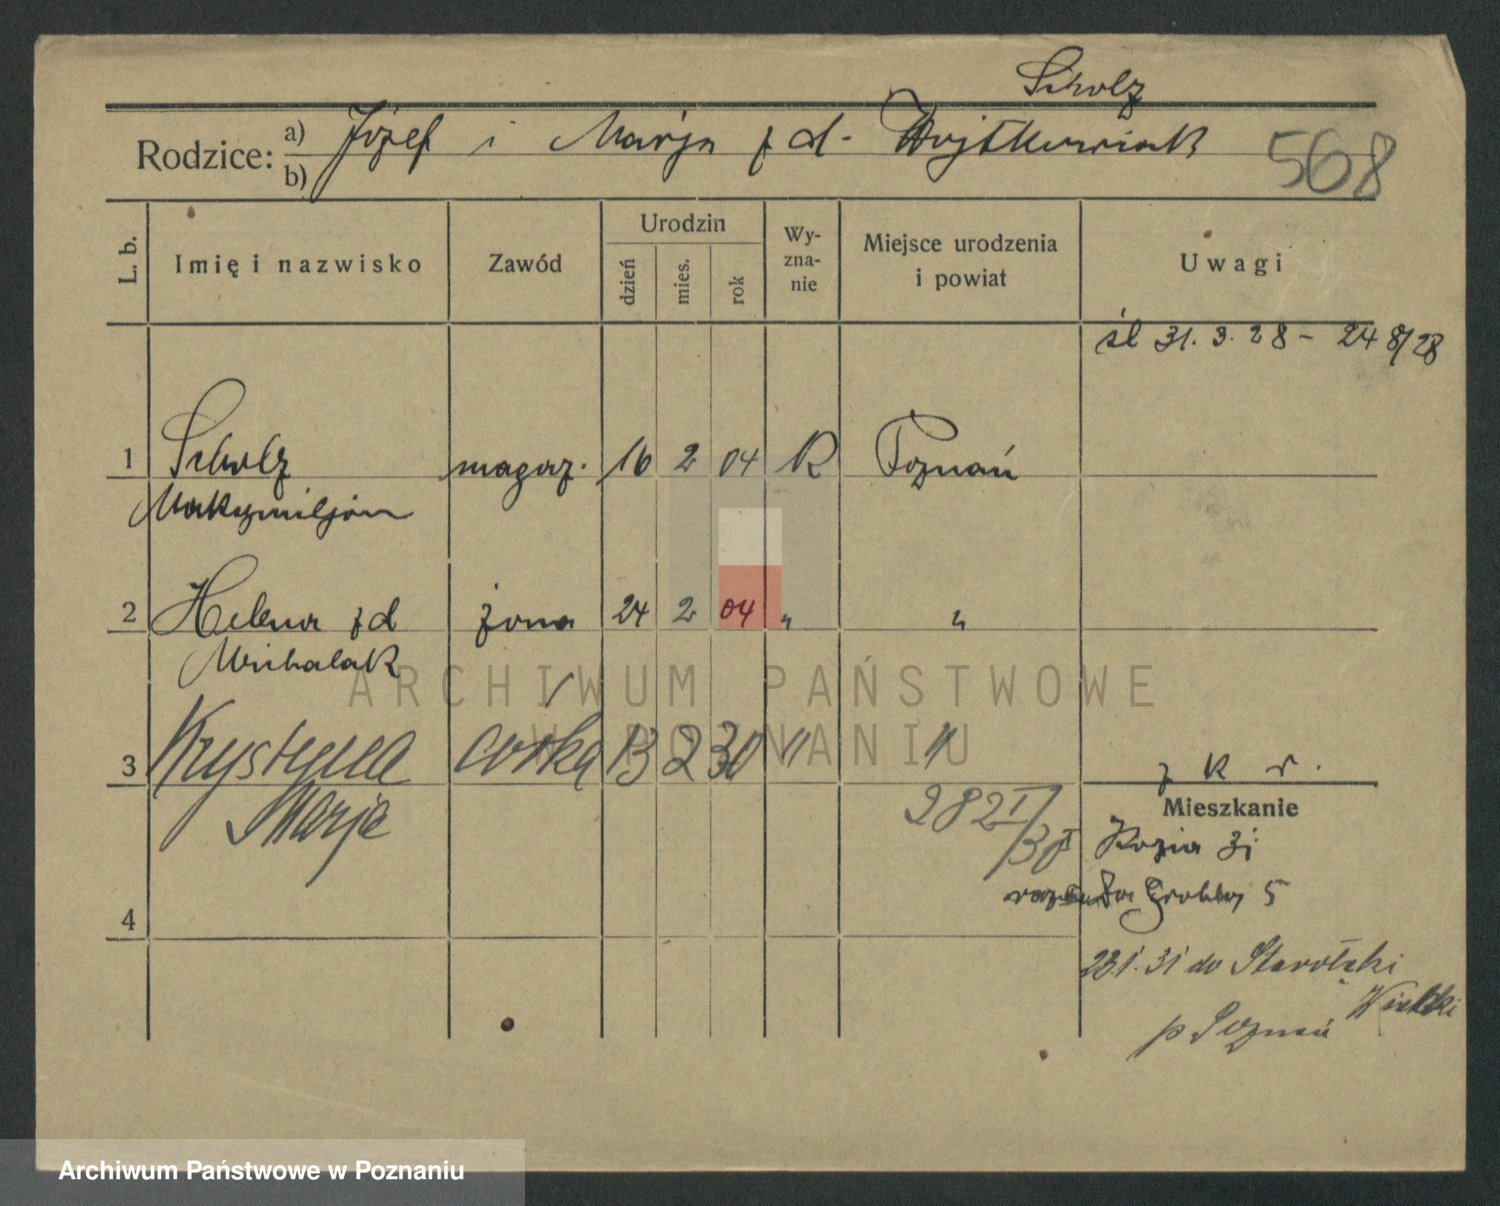 Scholz
Rodzice: a) Józef i Marja z d. Wojtkowiak
b)
568
L. b.
Imię i nazwisko
Zawód
Urodzin
dzień
mies.
rok
Wy-
zna-
nie
Miejsce urodzenia
i powiat
Uwagi
śl 31. 3. 28 – 24 8/28
1 Scholz magaz. 16 2 04 R Poznań
Maksymiljan
2 Helena z d żona 24 2 04 " "
Michalak
3 Krystyna córka 13 2 30 " "
Marja
z k r.
282 I/30
Mieszkanie
Kozia 31
Grobla 5
4
23.1.31 do Starołęki
Wielkiej
p Poznań
ARCHIWUM PAŃSTWOWE
W POZNANIU
Archiwum Państwowe w Poznaniu